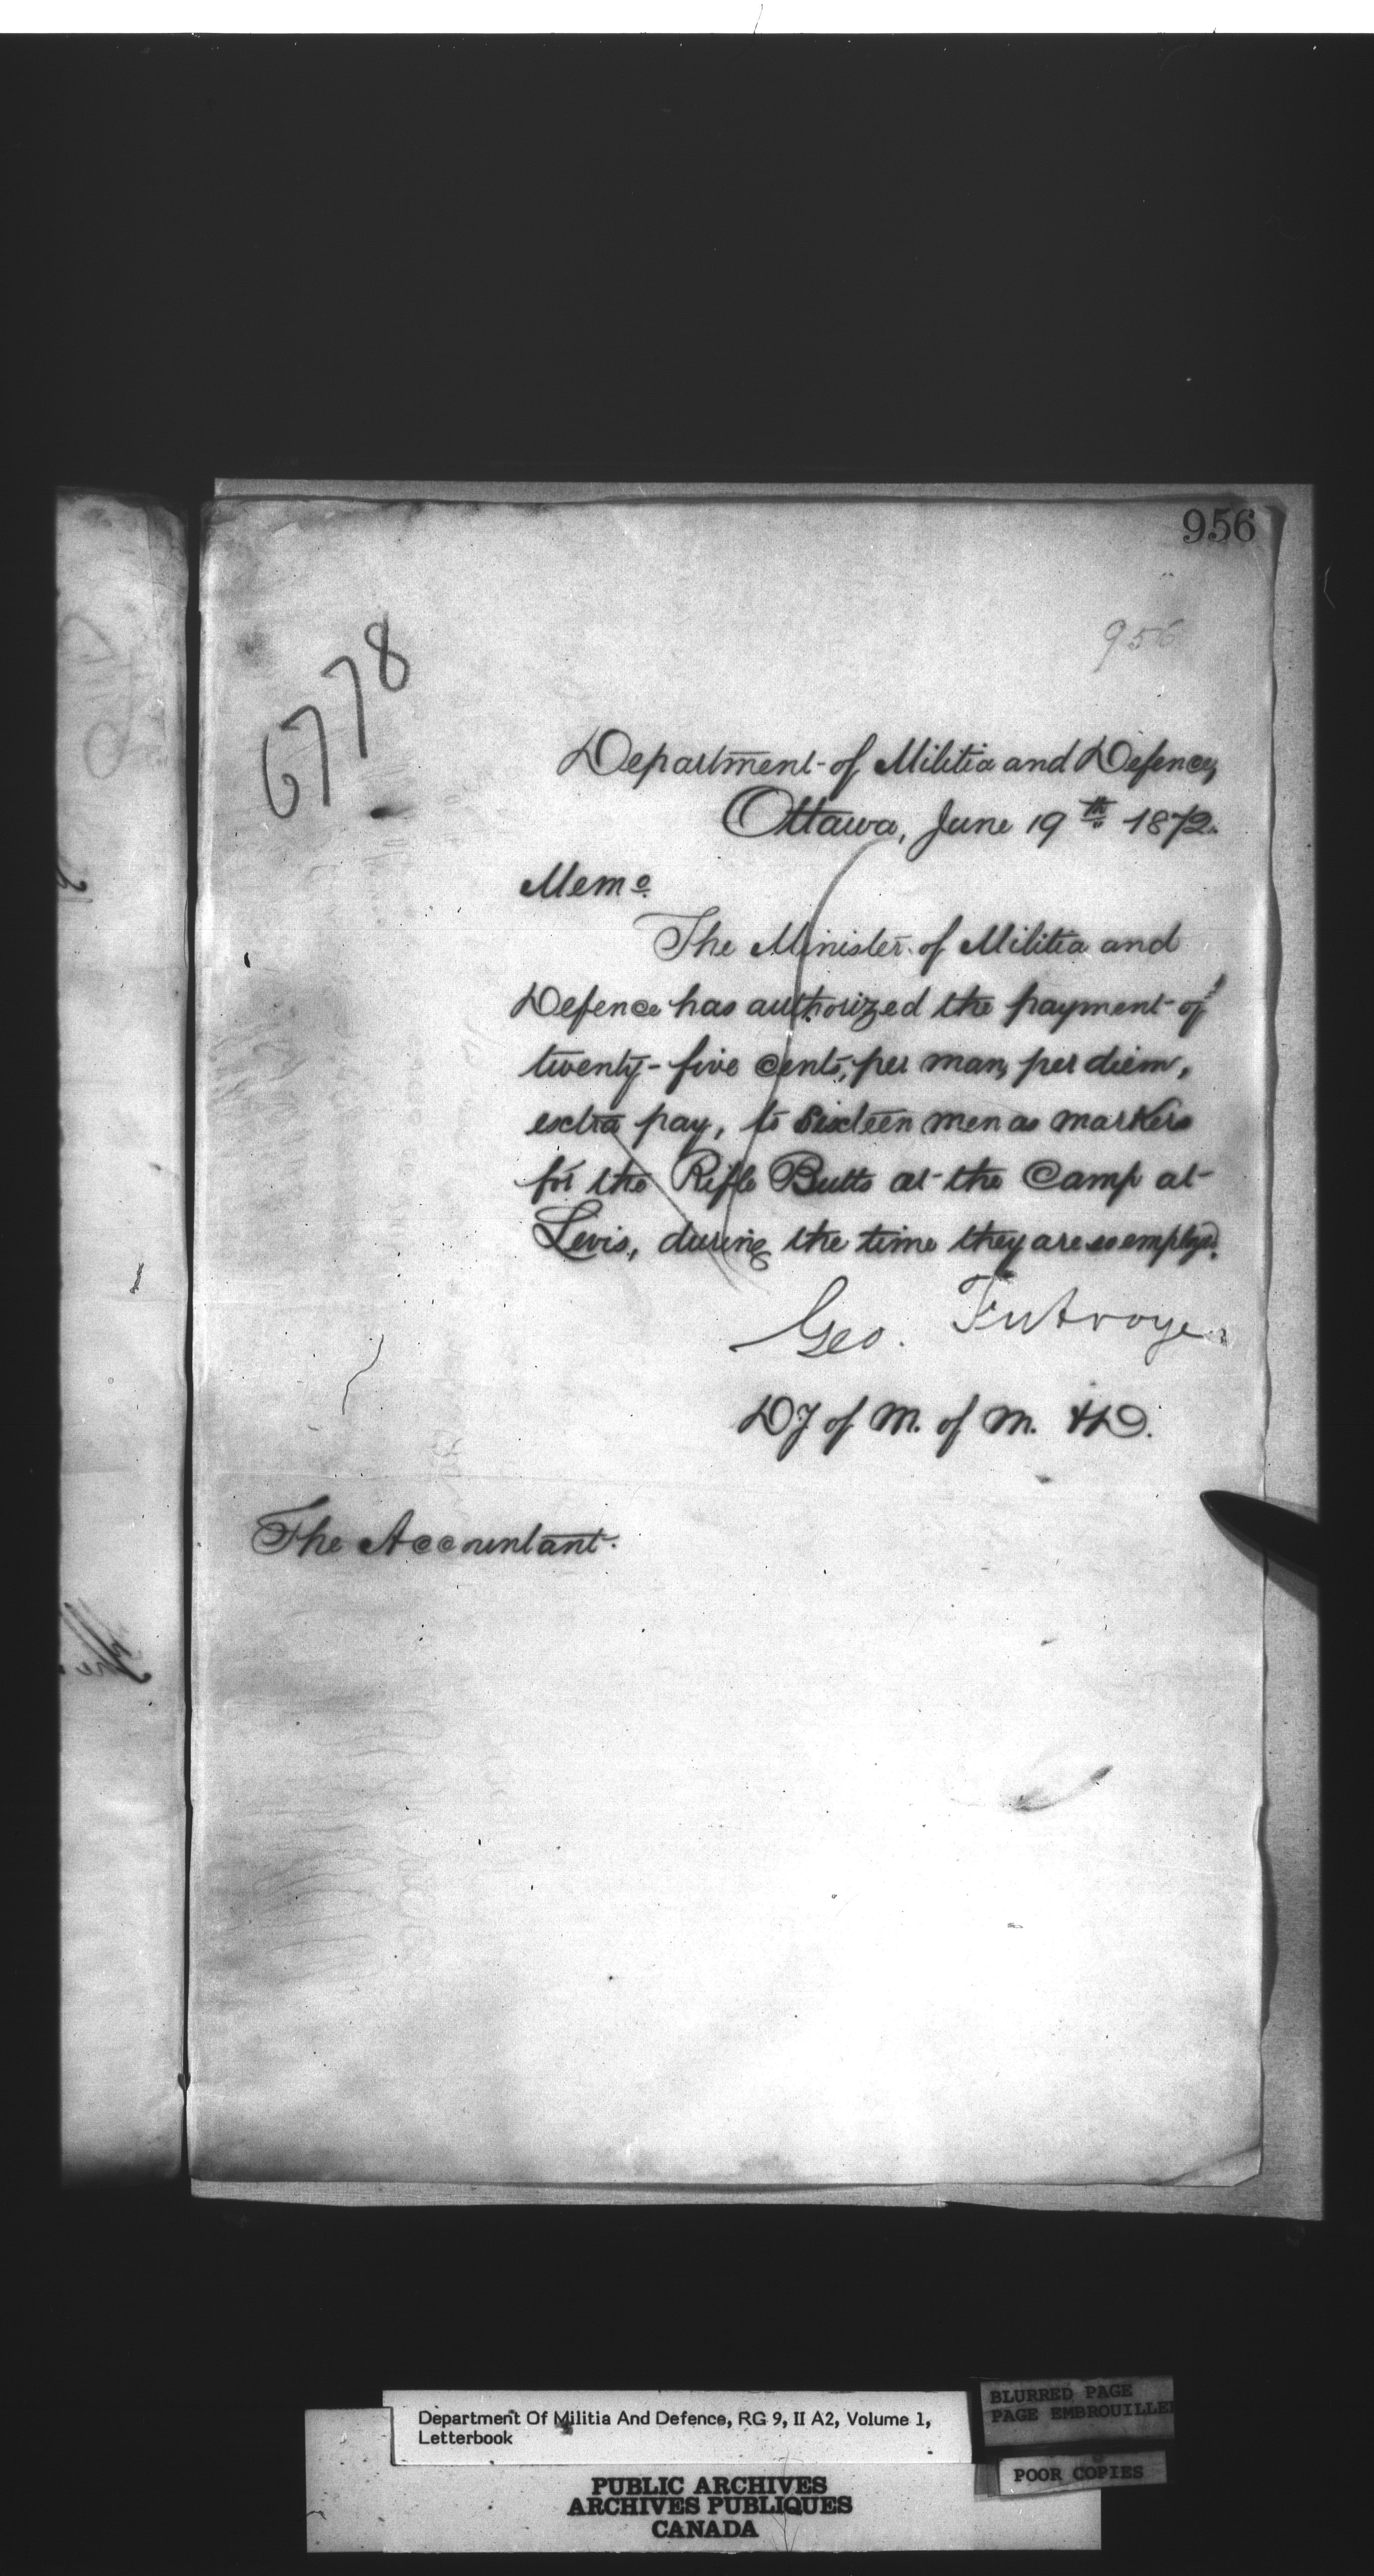 956
956
6778
Department of Militia and Defence,
Ottawa, June 19th 1872.
Memo.
The Minister of Militia and
Defence has authorized the payment of
twenty-five cents, per man, per diem,
extra pay, to Sixteen men as markers
for the Rifle Butts at the Camp at
Levis, during the time they are so employd.
Geo. Futvoye
D of M. of M. & D.
The Accountant.
Department Of Militia And Defence, RG 9, II A2, Volume 1,
Letterbook
BLURRED PAGE
PAGE EMBROUILLE
POOR COPIES
PUBLIC ARCHIVES
ARCHIVES PUBLIQUES
CANADA